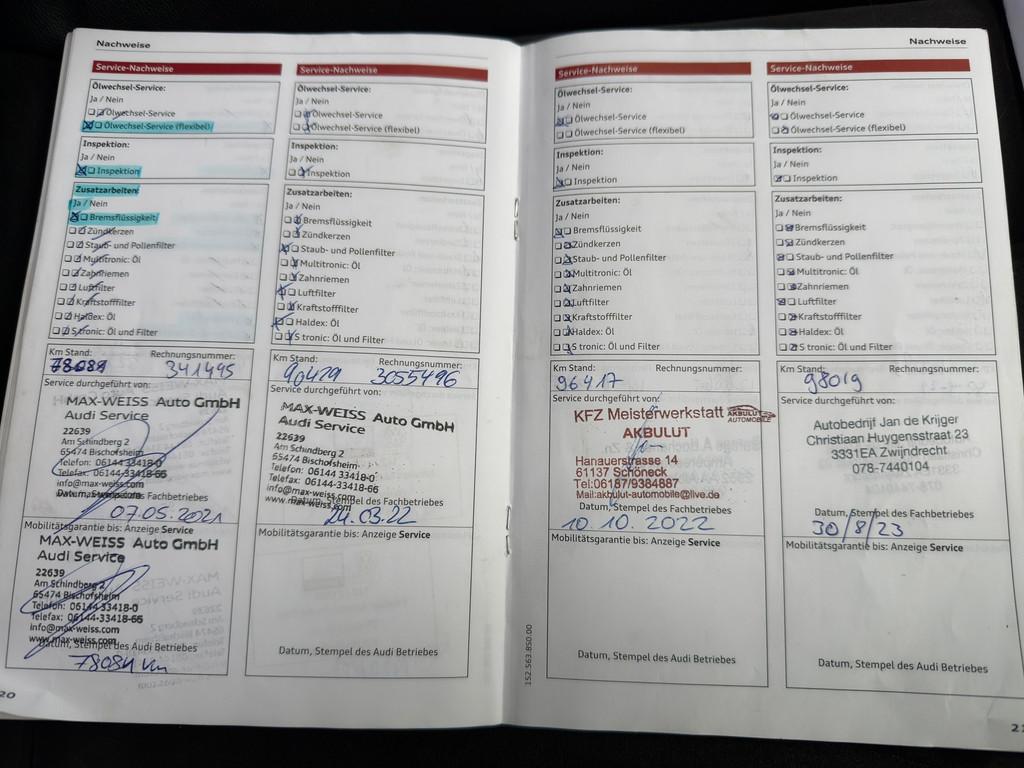 Nachweise
Service-Nachweise
Ölwechsel-Service:
Ja / Nein
Ölwechsel-Service
Ölwechsel-Service (flexibel)
Inspektion:
Ja / Nein
Inspektion
Zusatzarbeiten:
Ja / Nein
Bremsflüssigkeit
Zündkerzen
Staub- und Pollenfilter
Multitronic: Öl
Zahnriemen
Luftfilter
Kraftstofffilter
Haldex: Öl
S tronic: Öl und Filter
Km Stand: Rechnungsnummer:
78081 341495
Service durchgeführt von:
MAX-WEISS Auto GmbH
Audi Service
22639
Am Schindberg 2
65474 Bischofsheim
Telefon: 06144-33418-0
Telefax: 06144-33418-66
info@max-weiss.com
www.max-weiss.com
Datum, Stempel des Fachbetriebes
07.05.2021
Mobilitätsgarantie bis: Anzeige Service
MAX-WEISS Auto GmbH
Audi Service
22639
Am Schindberg 2
65474 Bischofsheim
Telefon: 06144-33418-0
Telefax: 06144-33418-66
info@max-weiss.com
www.max-weiss.com
Datum, Stempel des Audi Betriebes
78081 km
20
Service-Nachweise
Ölwechsel-Service:
Ja / Nein
Ölwechsel-Service
Ölwechsel-Service (flexibel)
Inspektion:
Ja / Nein
Inspektion
Zusatzarbeiten:
Ja / Nein
Bremsflüssigkeit
Zündkerzen
Staub- und Pollenfilter
Multitronic: Öl
Zahnriemen
Luftfilter
Kraftstofffilter
Haldex: Öl
S tronic: Öl und Filter
Km Stand: Rechnungsnummer:
90479 3055496
Service durchgeführt von:
MAX-WEISS Auto GmbH
Audi Service
22639
Am Schindberg 2
65474 Bischofsheim
Telefon: 06144-33418-0
Telefax: 06144-33418-66
info@max-weiss.com
www.max-weiss.com
Datum, Stempel des Fachbetriebes
24.03.22
Mobilitätsgarantie bis: Anzeige Service
Datum, Stempel des Audi Betriebes
152.563.850.00
Nachweise
Service-Nachweise
Ölwechsel-Service:
Ja / Nein
Ölwechsel-Service
Ölwechsel-Service (flexibel)
Inspektion:
Ja / Nein
Inspektion
Zusatzarbeiten:
Ja / Nein
Bremsflüssigkeit
Zündkerzen
Staub- und Pollenfilter
Multitronic: Öl
Zahnriemen
Luftfilter
Kraftstofffilter
Haldex: Öl
S tronic: Öl und Filter
Km Stand: Rechnungsnummer:
96417
Service durchgeführt von:
KFZ Meisterwerkstatt AKBULUT AUTOMOBILE
AKBULUT
Hanauerstrasse 14
61137 Schöneck
Tel:06187/9384887
Mail:akbulut-automobile@live.de
Datum, Stempel des Fachbetriebes
10.10.2022
Mobilitätsgarantie bis: Anzeige Service
Datum, Stempel des Audi Betriebes
Service-Nachweise
Ölwechsel-Service:
Ja / Nein
Ölwechsel-Service
Ölwechsel-Service (flexibel)
Inspektion:
Ja / Nein
Inspektion
Zusatzarbeiten:
Ja / Nein
Bremsflüssigkeit
Zündkerzen
Staub- und Pollenfilter
Multitronic: Öl
Zahnriemen
Luftfilter
Kraftstofffilter
Haldex: Öl
S tronic: Öl und Filter
Km Stand: Rechnungsnummer:
98019
Service durchgeführt von:
Autobedrijf Jan de Krijger
Christiaan Huygensstraat 23
3331EA Zwijndrecht
078-7440104
Datum, Stempel des Fachbetriebes
30/8/23
Mobilitätsgarantie bis: Anzeige Service
Datum, Stempel des Audi Betriebes